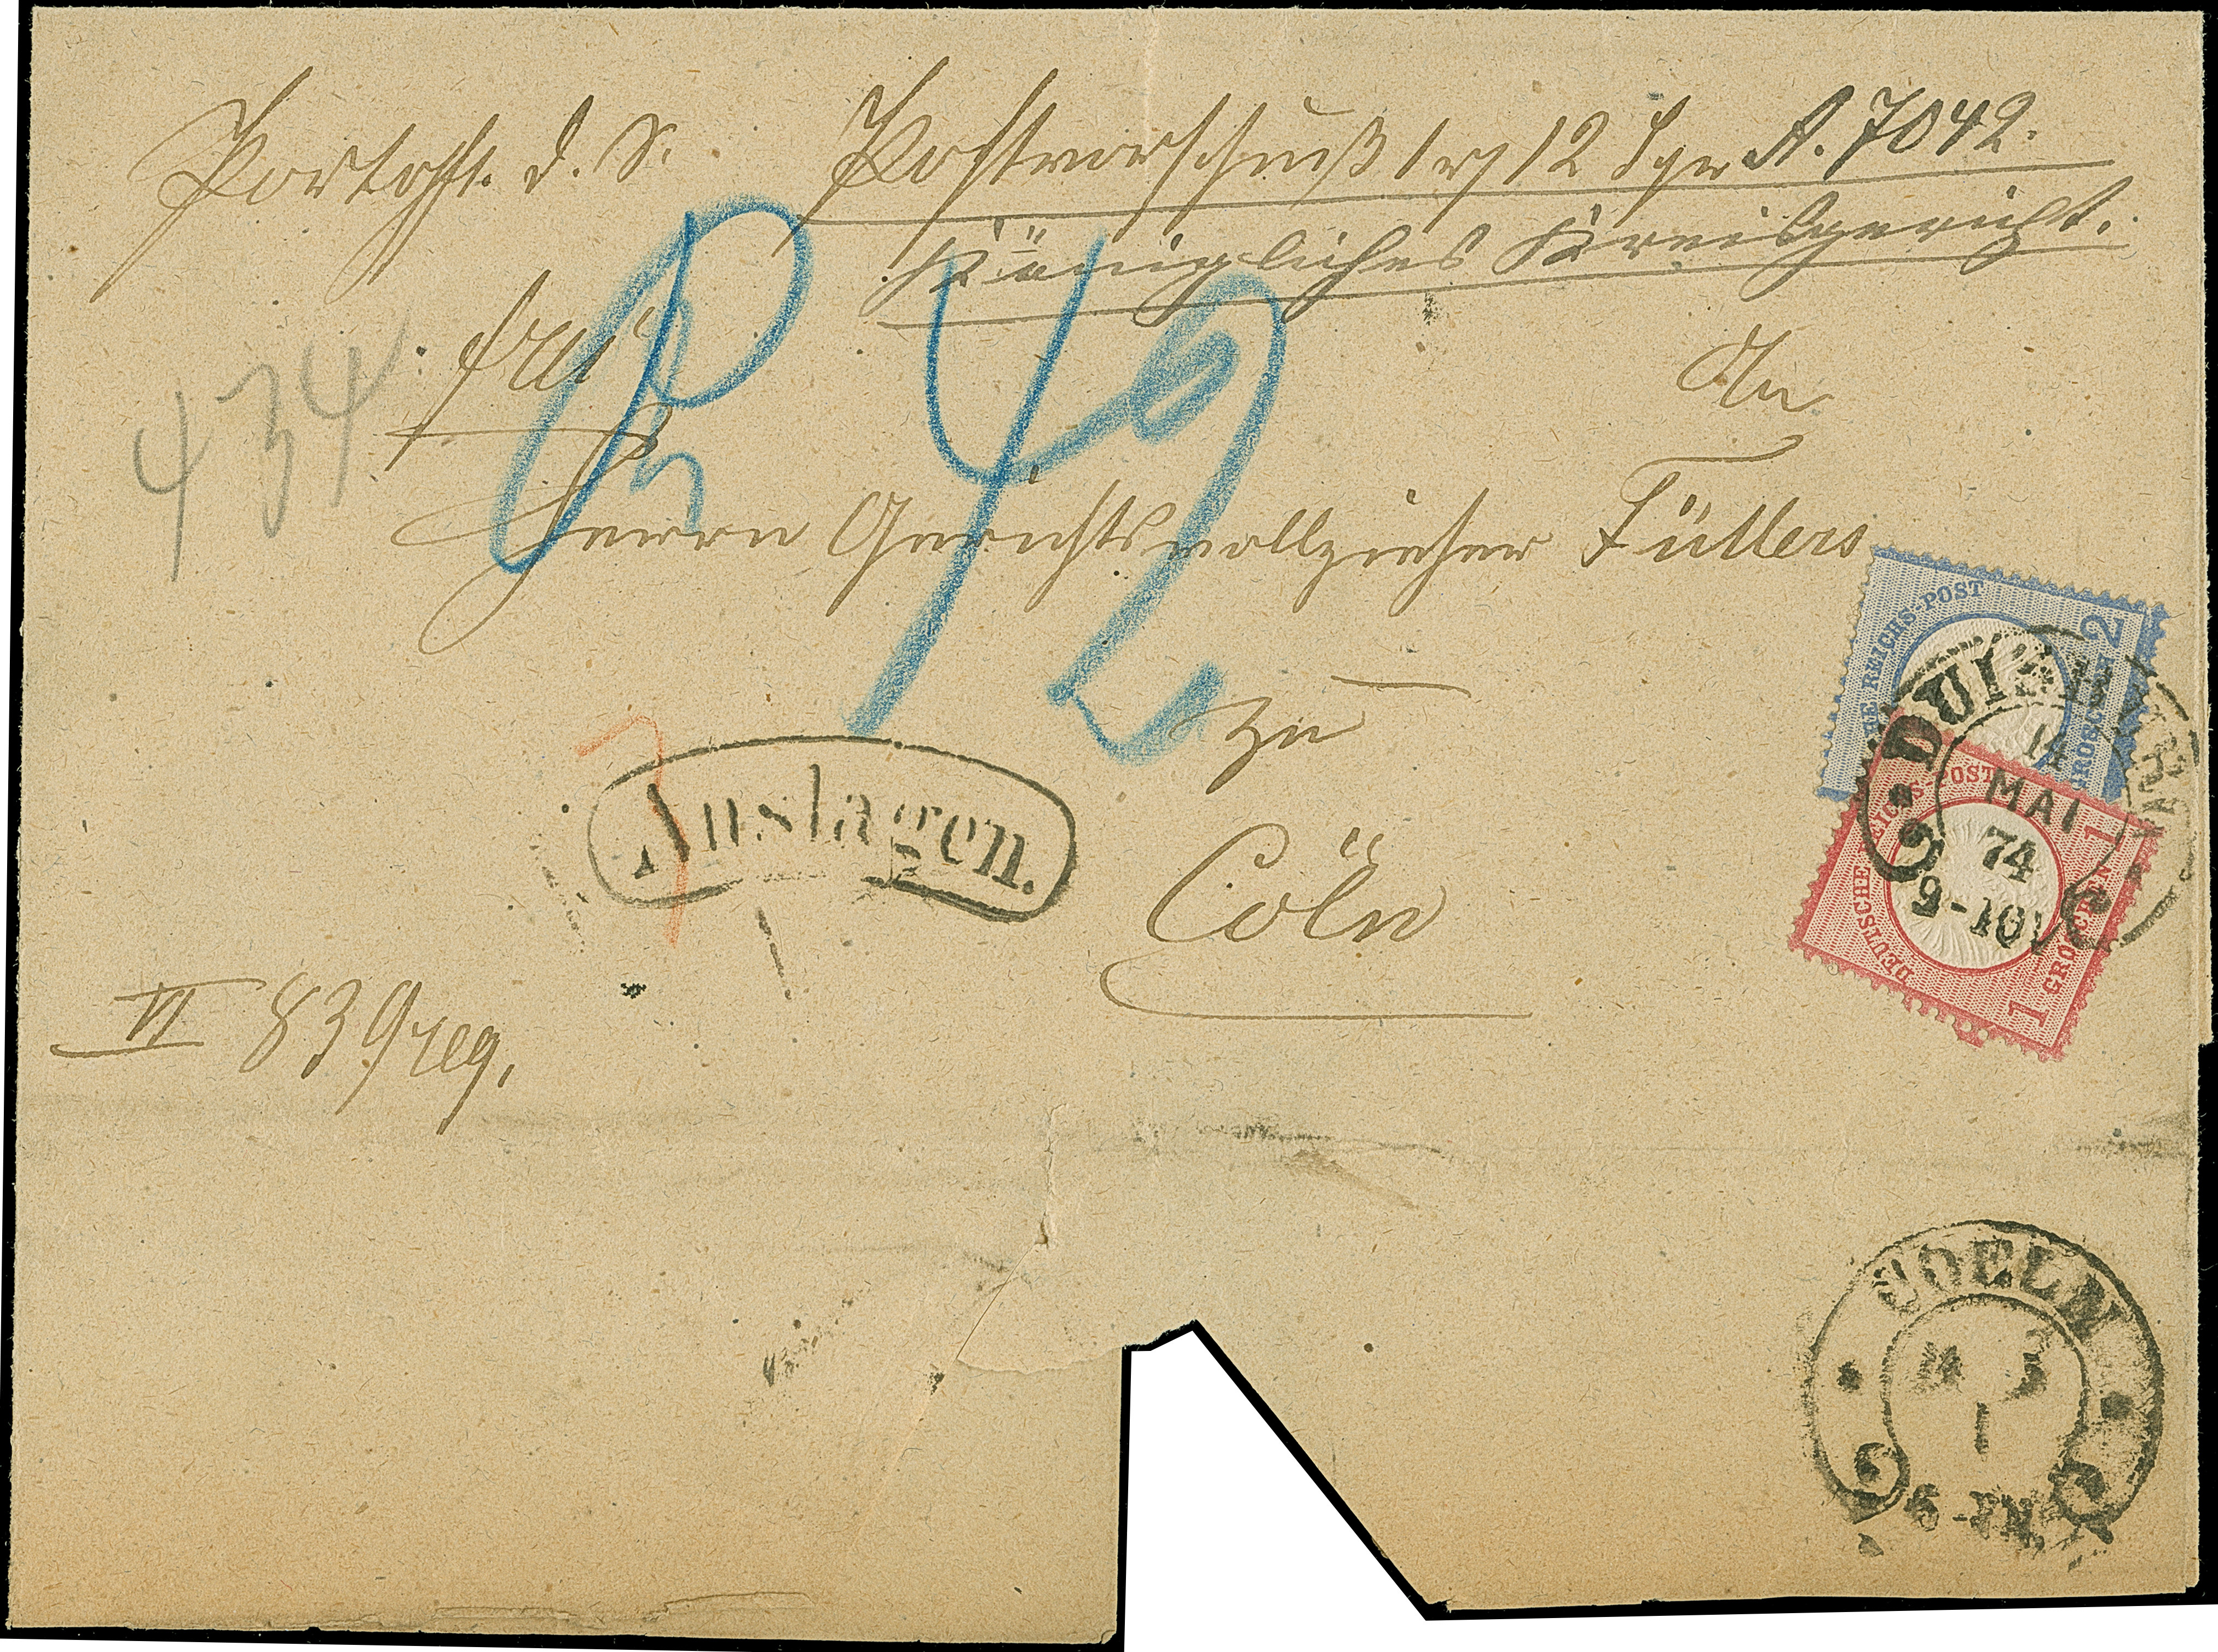 Portopfl. d. S.
Postvorschuß 1 rt 12 Sgr A. 7042.
Königliches Kreisgericht.
frei
434
42
An
Herrn Gerichtsvollzieher Füllers
zu
Cöln
VI 839 reg.
7
Auslagen.
DEUTSCHE REICHS-POST
2 GROSCHEN
DEUTSCHE REICHS-POST
1 GROSCHEN 1
DUISBURG
14
MAI
74
9-10V
COELN
14 5
1
6-7N